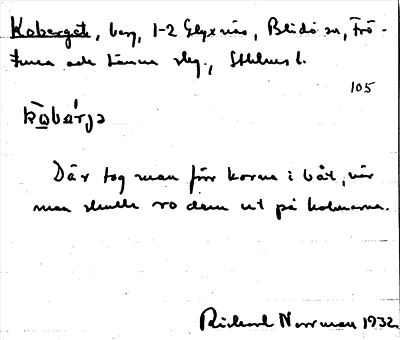 Koberget, berg, 1-2 Glyxnäs, Blidö sn, Frö-
tuna och Länna slg., Sthlms l.
105
kòbærjə
Där tog man förr korna i båt, när
man skulle ro dem ut på holmarna.
Rickard Norrman 1932